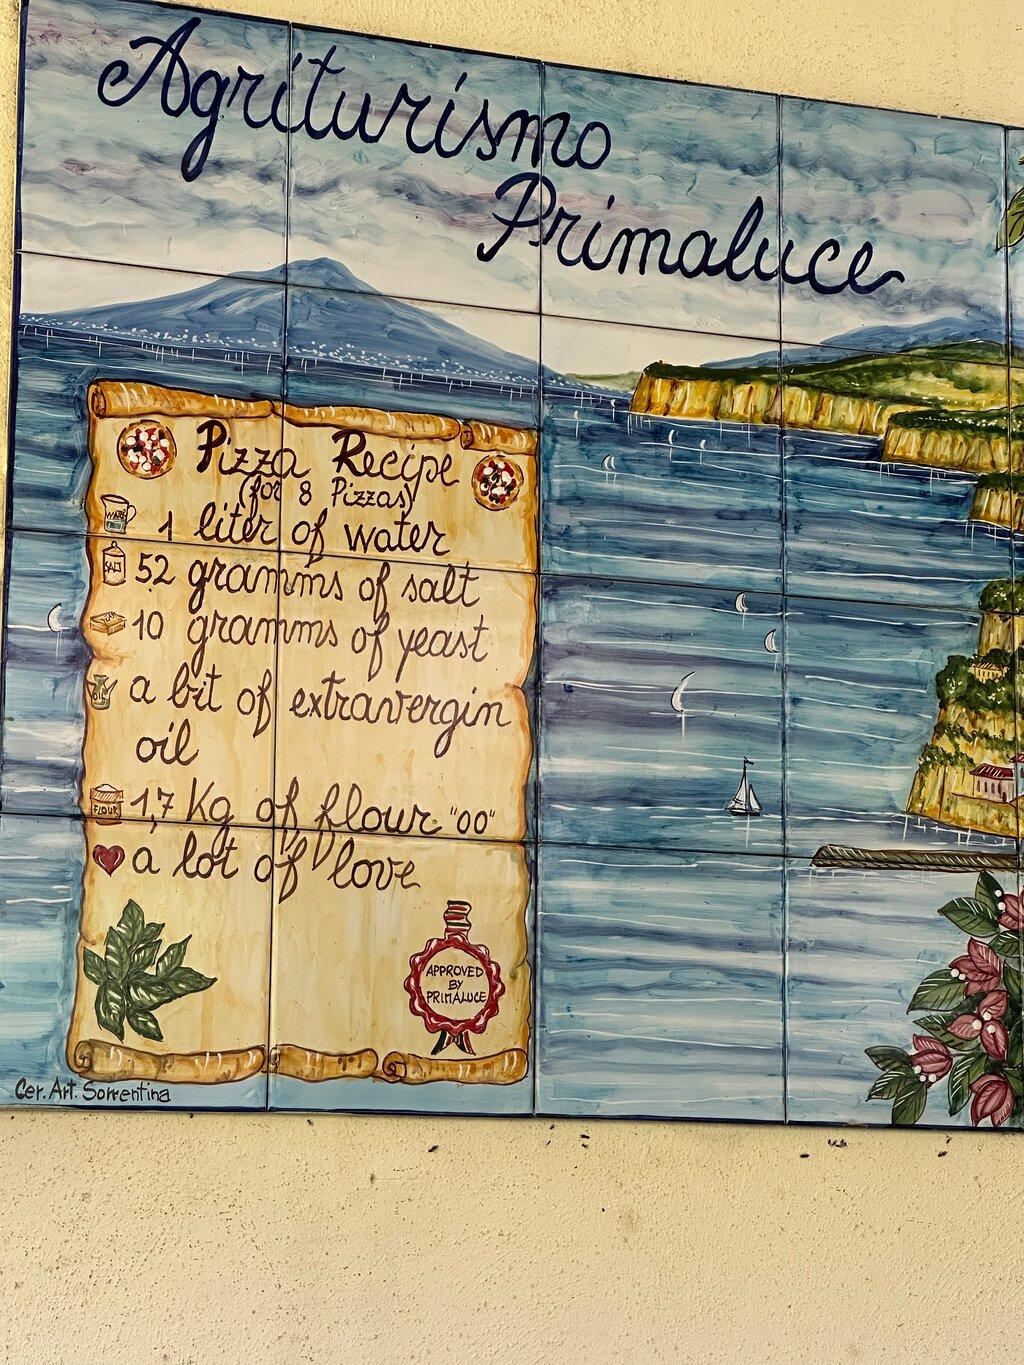 Agriturismo
Primaluce
Pizza Recipe
(for 8 Pizzas)
WATER
1 liter of water
SALT
52 gramms of salt
10 gramms of yeast
OIL
a bit of extravergin
oil
FLOUR
1,7 Kg of flour "00"
a lot of love
APPROVED
BY
PRIMALUCE
Cer. Art. Sorrentina